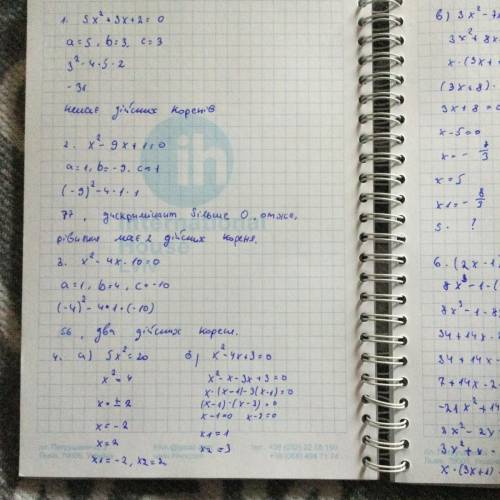 1. 5x² + 3x + 2 = 0
a = 5, b = 3, c = 3
3² - 4 · 5 · 2
- 31
немає дійсних коренів
2. x² - 9x + 1 = 0
a = 1, b = -9, c = 1
(-9)² - 4 · 1 · 1
77, дискримінант більше 0, отже,
рівняння має 2 дійсних кореня.
3. x² - 4x - 10 = 0
a = 1, b = 4, c = -10
(-4)² - 4 · 1 · (-10)
56, два дійсних кореня.
4. а) 5x² = 20
x² = 4
x = ± 2
x = -2
x = 2
x1 = -2, x2 = 2
б) x² - 4x + 3 = 0
x² - x - 3x + 3 = 0
x · (x - 1) - 3(x - 1) = 0
(x - 1) · (x - 3) = 0
x - 1 = 0 x - 2 = 0
x1 = 1
x2 = 3
ih
International
House
в) 3x² - 7x
3x² + 8x
x · (3x +
(3x + 8) ·
3x + 8 = 0
x - 5 = 0
x = - 8/3
x = 5
x1 = - 8/3
5. ?
6. (2x - 1)
8x³ - 1 - (
8x³ - 1 - 8
34 + 14x
34 + 14x
7 + 14x - 2
-21x² + 14
3x² - 2x
3x² + x -
x · (3x + 1)